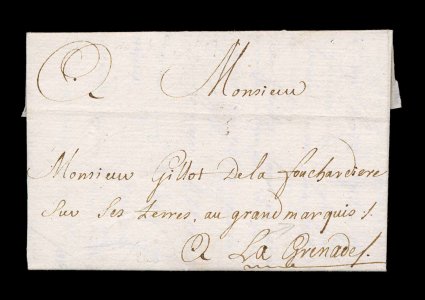 A Monsieur
Monsieur Gillot de la fouchardiere
sur ses terres, au grand marquis /.
A La Grenade /.